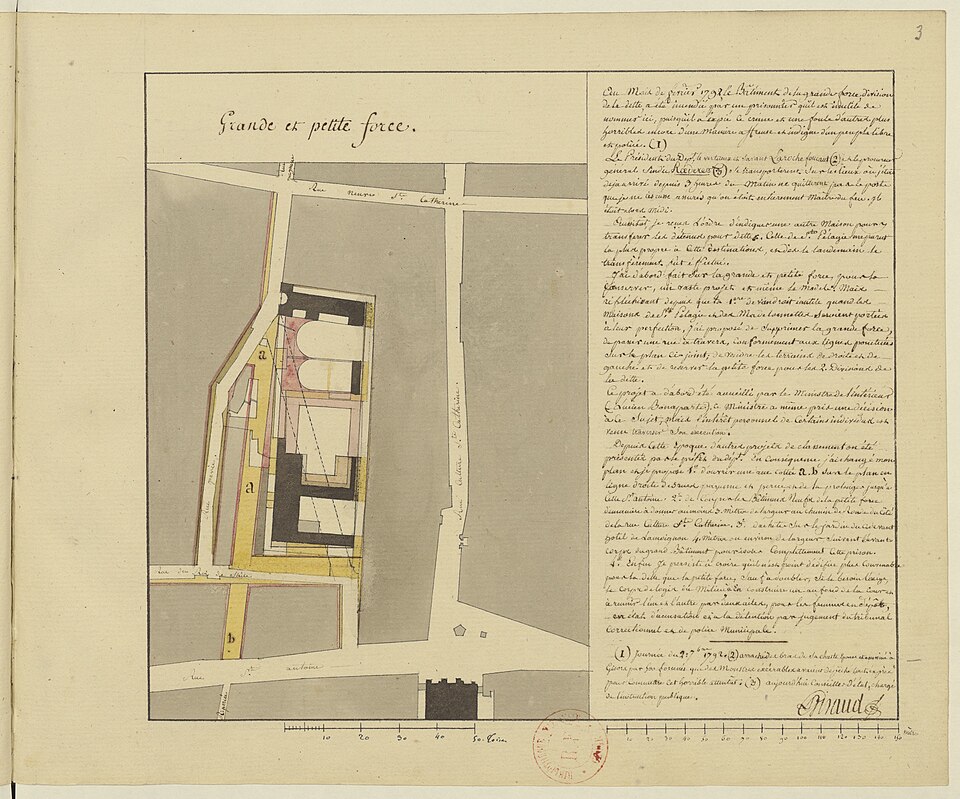 3
Grande et petite force.
Rue Neuve Ste Catherine
Rue Culture Ste Catherine
Rue pavée
a
a
b
Rue du Roi de Sicile
Rue St antoine
10 20 30 40 50 Toises
Au Mois de février 1792 le Bâtiment de la grande force, division
de la dette, a été incendié par un prisonnier qu'il est inutile de
nommer ici, puisqu'il a expié ce crime et une foule d'autres plus
horribles encore d'une Manière affreuse et indigne d'un peuple libre
et policé. (1)
Le Président du Dépt. le vertueux et savant Larochefoucaut (2) et le procureur
général Sindic Rœderer (3) s'y transportèrent sur les lieux où j'étois
déjà arrivé depuis 3 heures du Matin ne quittèrent pas le poste
que je ne les eusse assurés qu'on étoit entièrement Maître du feu. Il
étoit alors midi.
Aussitôt je reçus l'ordre d'indiquer une autre Maison pour y
transférer les détenus pour dette. Celle de Ste Pélagie me parut
la plus propre à Cette destination, et dès le lendemain le
transfèrement fut effectué.
J'ai d'abord fait sur la grande et petite force, pour la
Conserver, un vaste projet et même le Modèle. Mais
réfléchissant depuis que la 1ère deviendroit inutile quand les
Maisons de Ste Pélagie et des Madelonnettes seroient portées
à leur perfection, j'ai proposé de supprimer la grande force,
de passer une rue à travers, conformément aux lignes ponctuées
sur le plan ci-joint; de vendre les terrains de droite et de
gauche et de réserver la petite force pour les 2 Divisions de
la dette.
Ce projet a d'abord été accueilli par le Ministre de l'intérieur
(Lucien Bonaparte). Ce Ministre a même pris une décision
à ce Sujet, mais l'intérêt personnel de certains individus est
venu traverser son exécution.
Depuis cette époque d'autres projets de classement ont été
présentés par le préfet du dépt. En Conséquence j'ai changé mon
plan et je propose 1° d'ouvrir une rue cottée a.b sur le plan en
ligne droite
Celle St antoine. 2°
demeure à donner au moins 3 Mètres de largeur au chemin de Ronde du Côté
de la rue Culture Ste Catherine. 3° d'acheter sur le jardin du ci devant
hôtel de Lamoignon 4 Mètres ou environ de largeur suivant
corps du grand Bâtiment pour isoler Complettement cette prison.
4° Enfin Je persiste à croire qu'il n'est point d'édifice plus Convenable
pour la dette que la petite force, sauf à doubler, si le besoin l'exige,
le Corps de logis du Milieu
à réunir l'un et l'autre par deux ailes, pour les femmes en dépôt,
en état d'accusation et à la détention par jugement du tribunal
Correctionnel et de police Municipale.
(1) Journée du 2 7bre 1792. (2)
Gisors par des hommes
pour Commettre cet horrible attentat. (3) aujourd'hui Conseiller d'état, chargé
de l'instruction publique.
Giraud
10 20 30 40 50 60 70 80 90 100 110 120 130 140 150